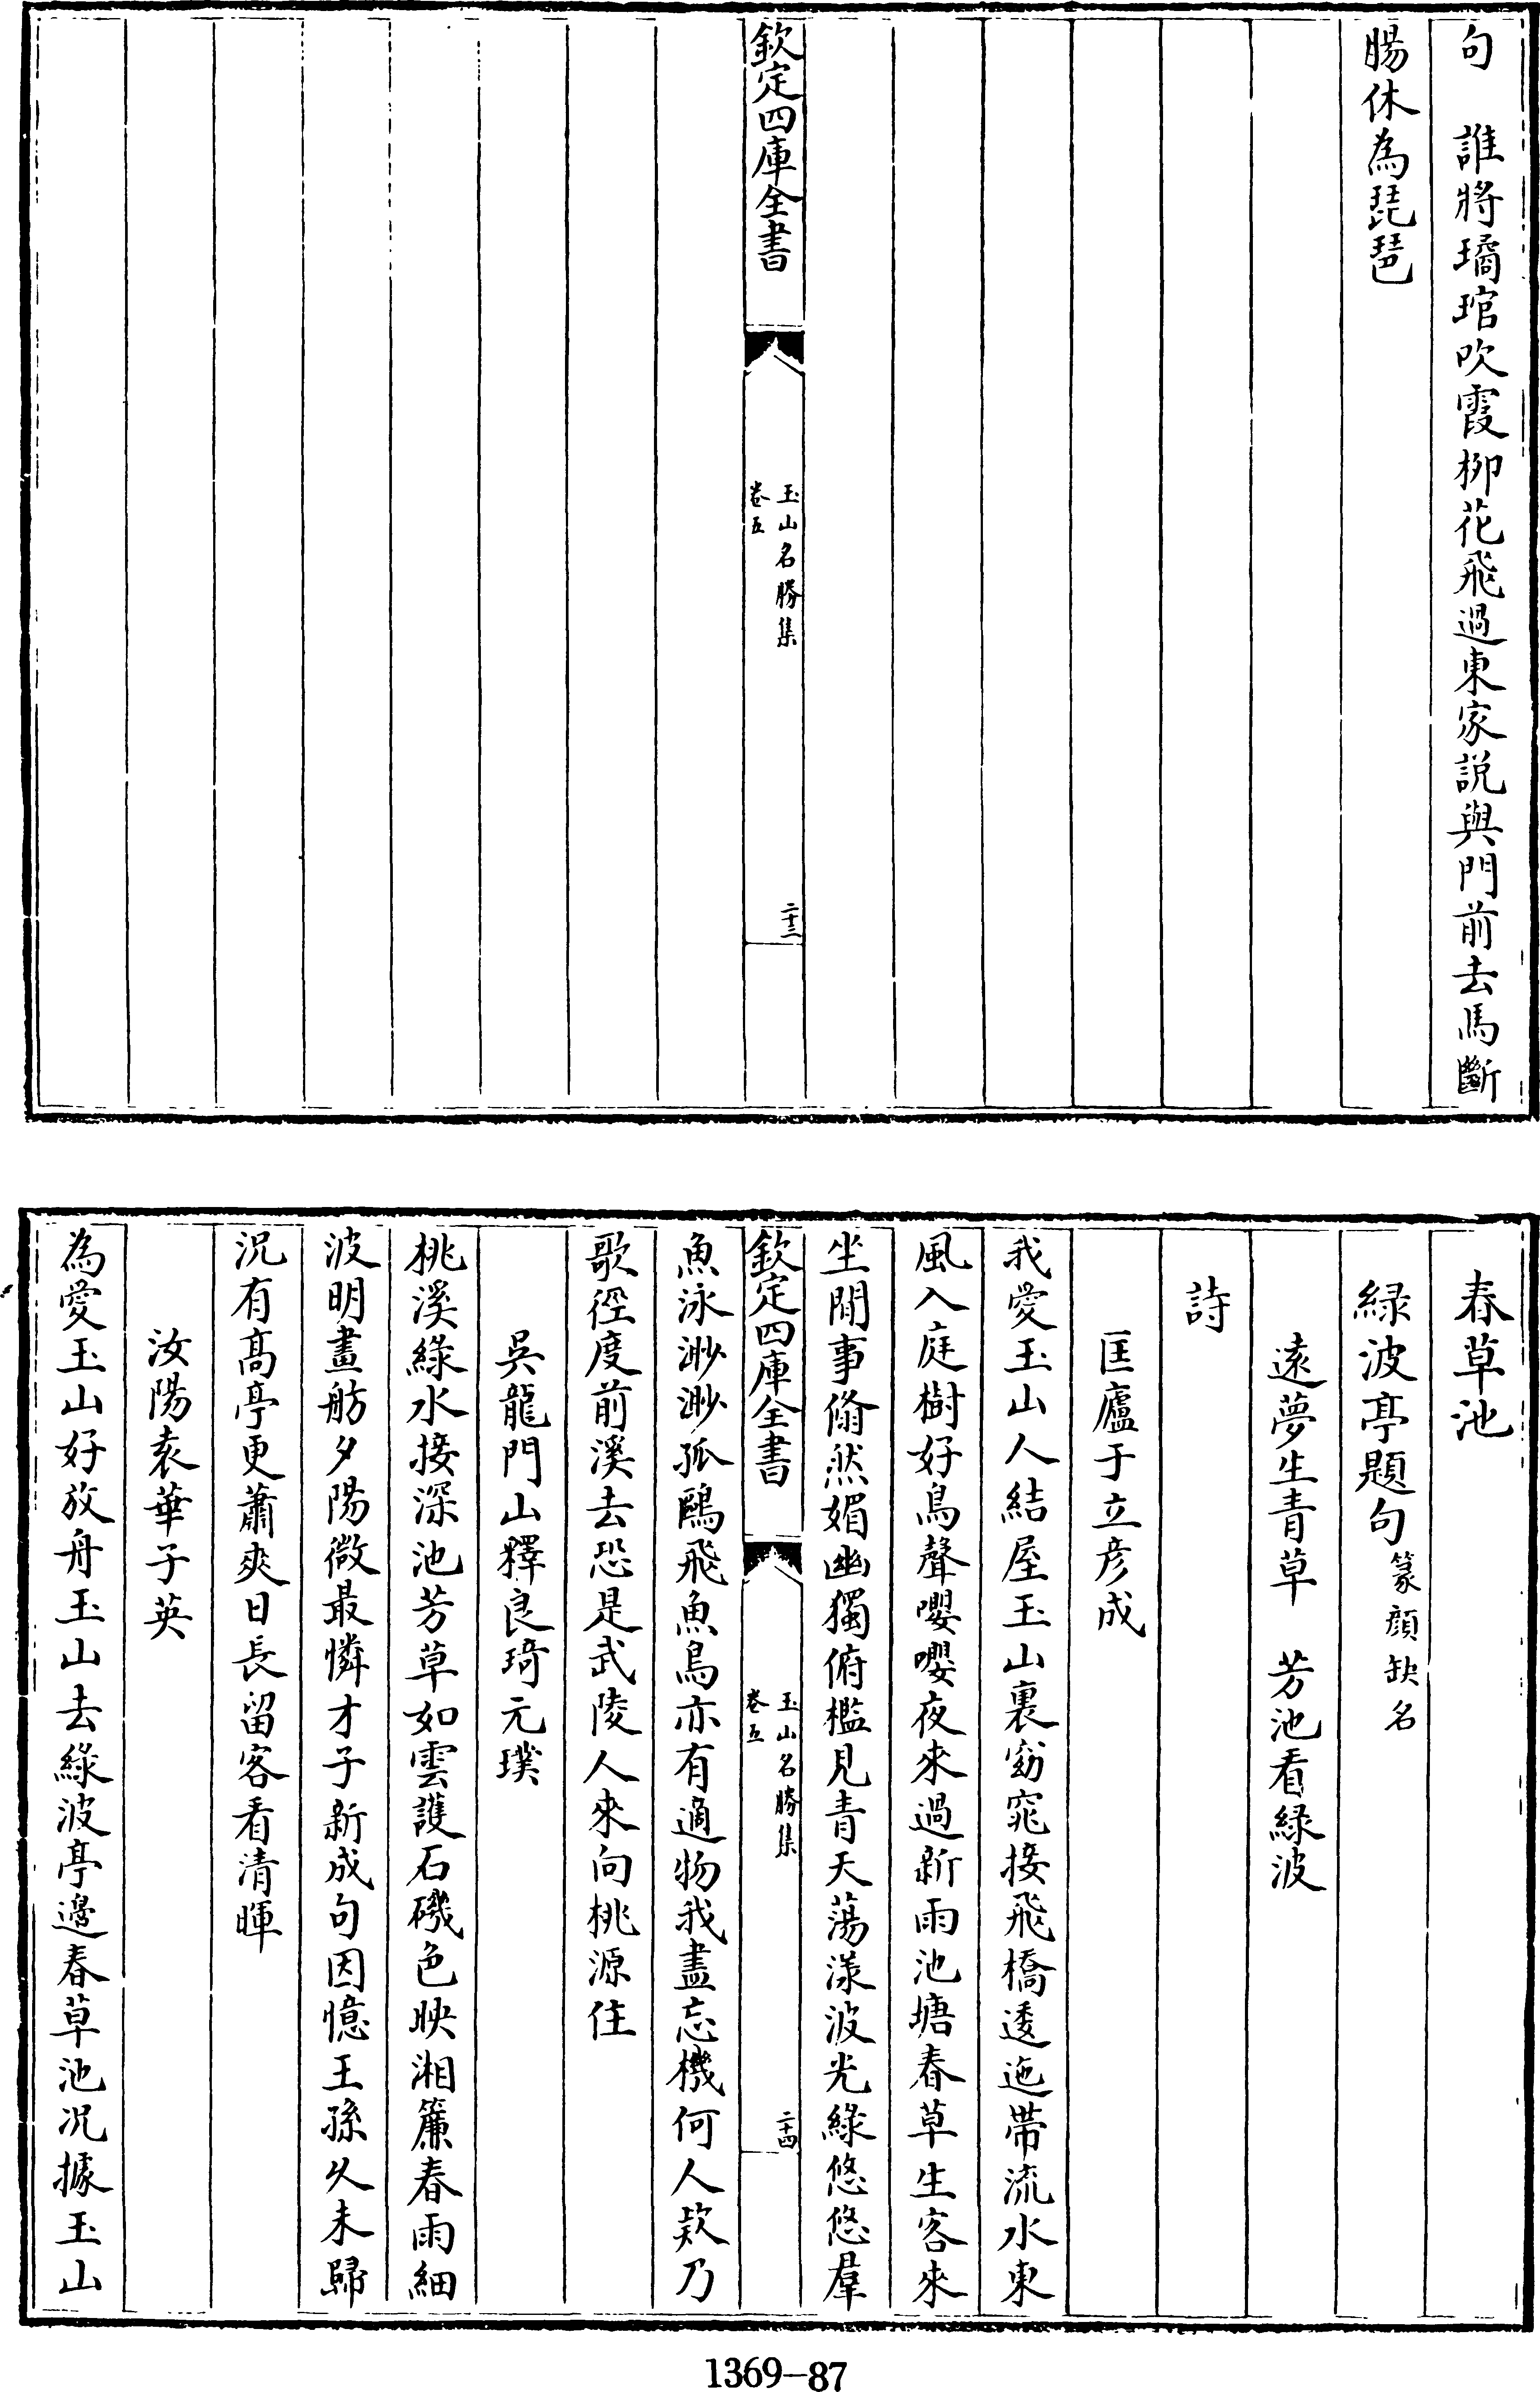 句　誰將璚琯吹霞柳花飛過東家説與門前去馬斷
腸休為琵琶
欽定四庫全書
玉山名勝集
卷五
二十三
春草池
緑波亭題句篆顔缺名
遠夢生青草　芳池看緑波
詩
匡廬于立彦成
我愛玉山人結屋玉山裏窈窕接飛橋逶迤帶流水東
風入庭樹好鳥聲嚶嚶夜來過新雨池塘春草生客來
坐閒事翛然媚幽獨俯檻見青天蕩漾波光緑悠悠羣
欽定四庫全書
玉山名勝集
卷五
二十四
魚泳渺渺孤鷗飛魚鳥亦有適物我盡忘機何人欵乃
歌徑度前溪去恐是武陵人來向桃源住
吳龍門山釋良琦元璞
桃溪綠水接深池芳草如雲護石磯色映湘簾春雨細
波明畫舫夕陽微最憐才子新成句因憶王孫久未歸
況有髙亭更蕭爽日長留客看清暉
汝陽袁華子英
為愛玉山好放舟玉山去綠波亭邊春草池況據玉山
1369-87